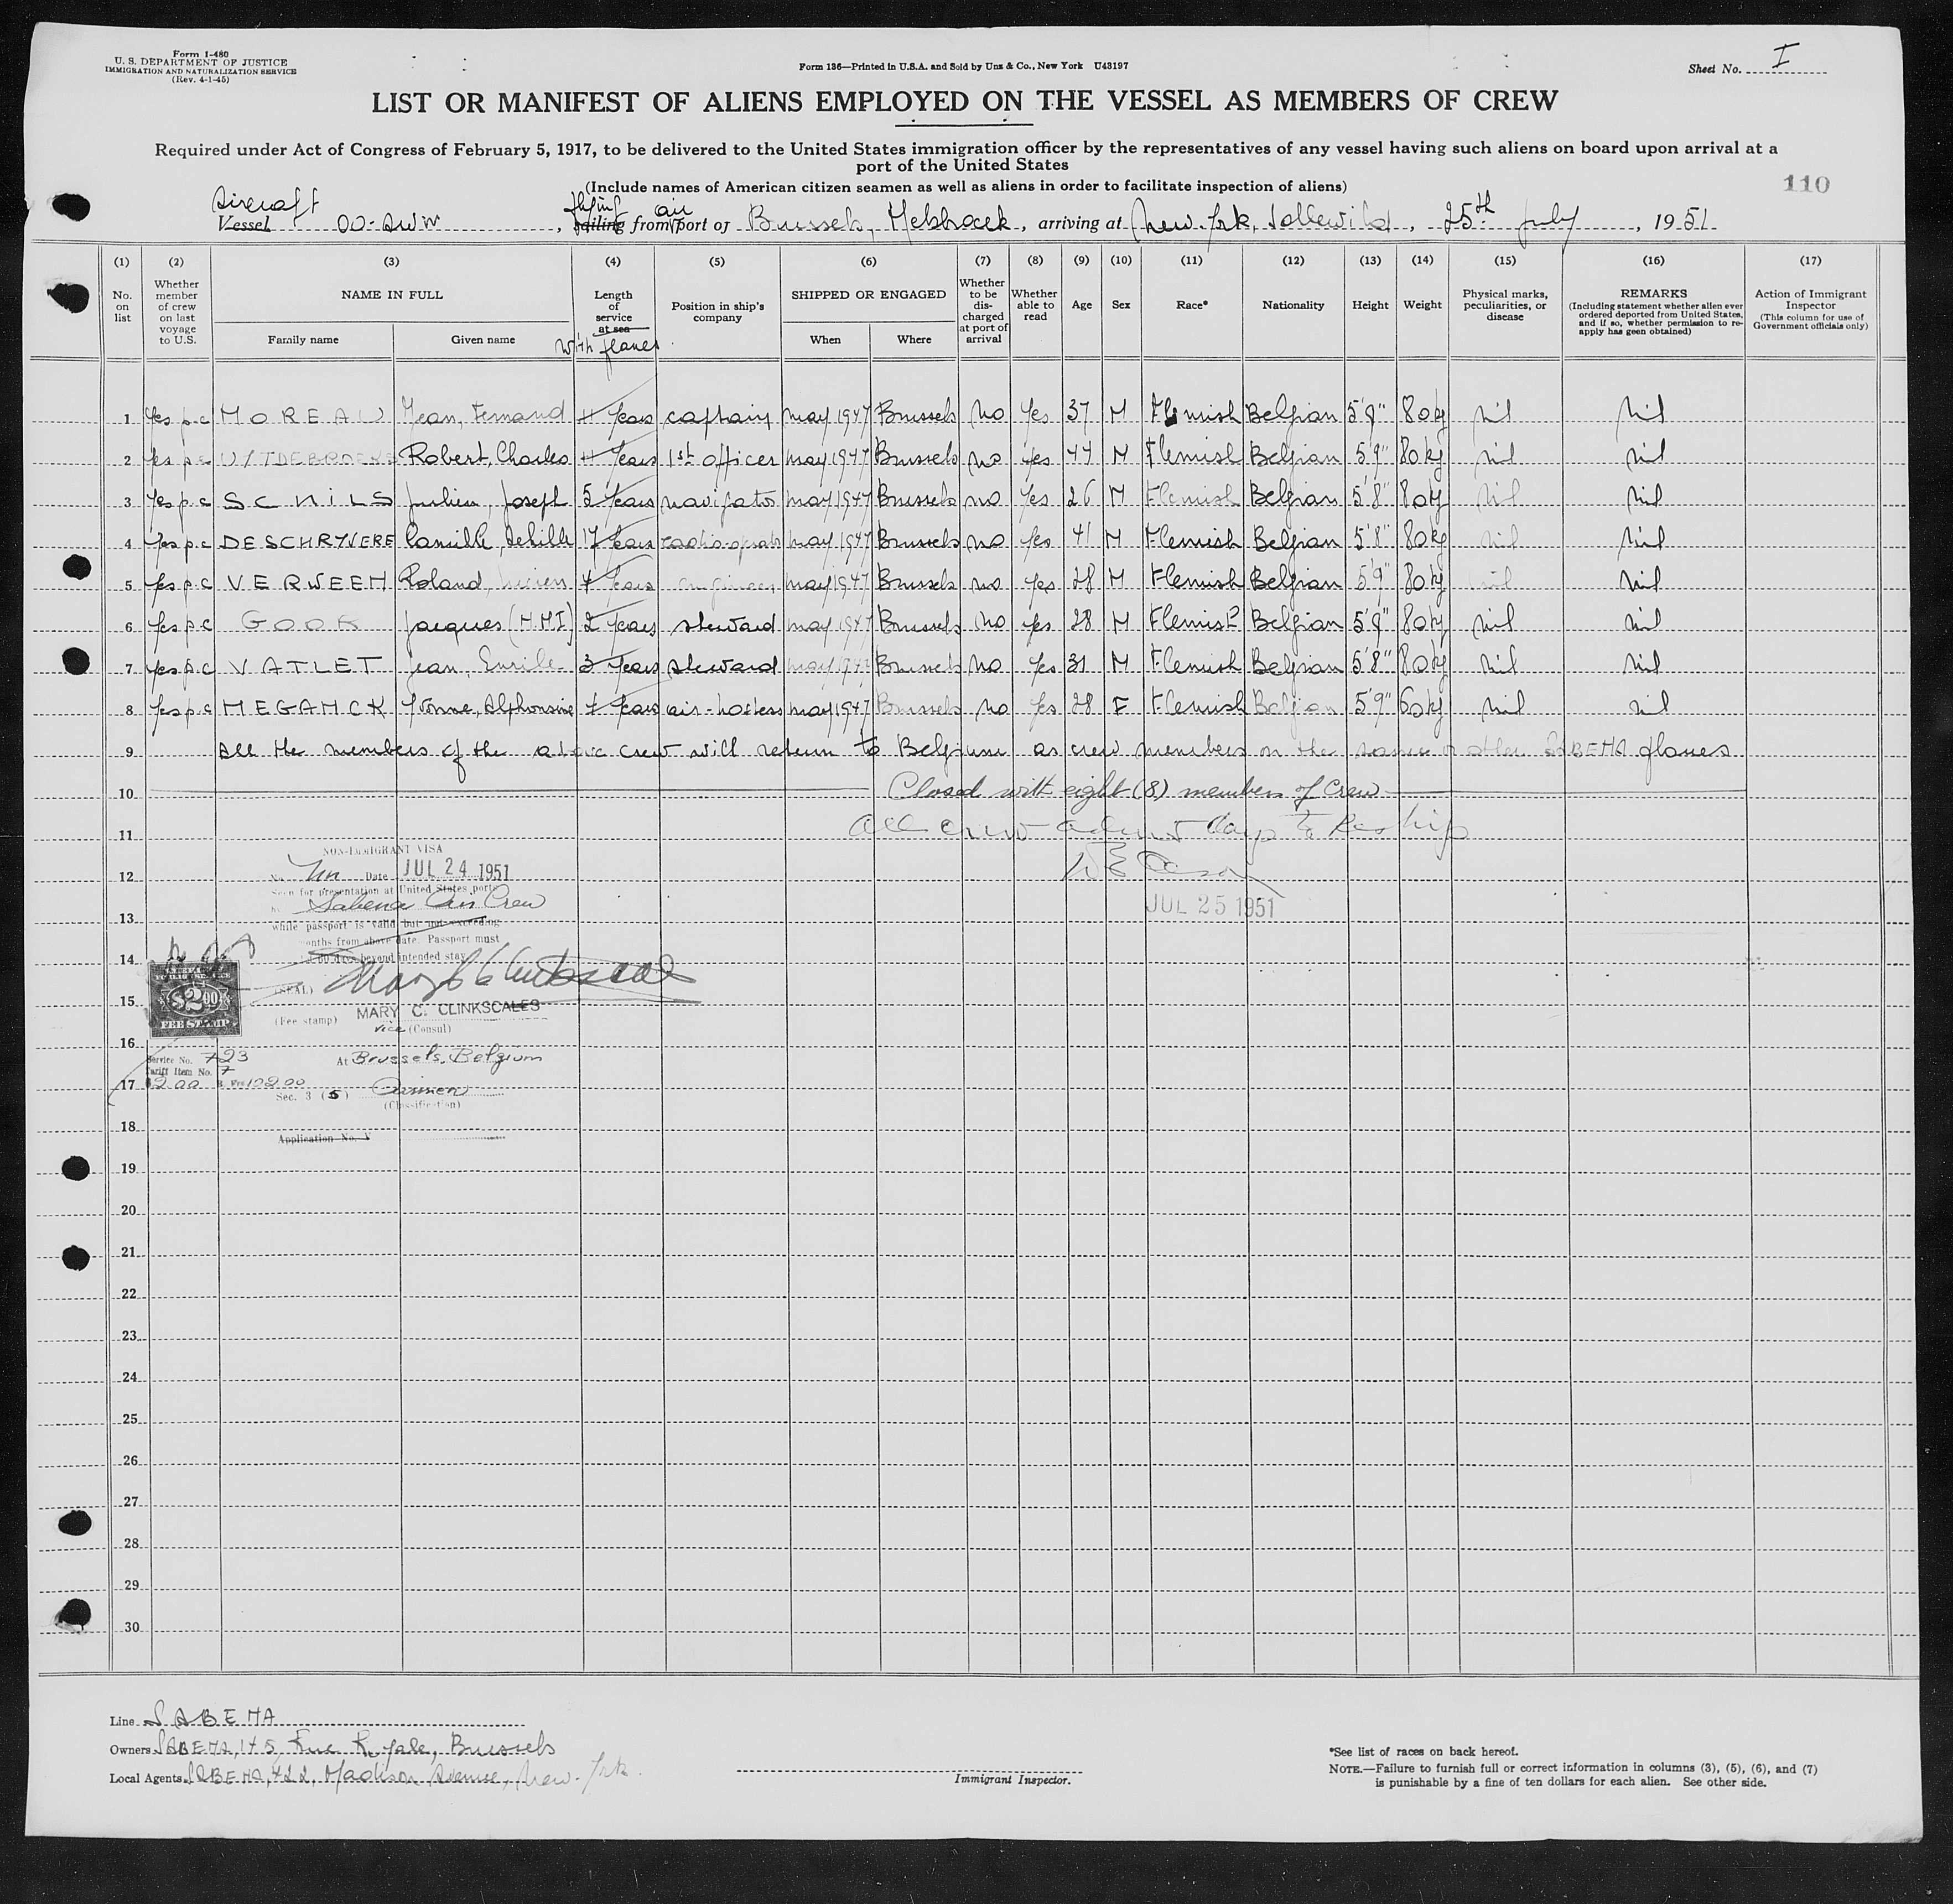 Form I-480
U. S. DEPARTMENT OF JUSTICE
IMMIGRATION AND NATURALIZATION SERVICE
(Rev. 4-1-45)
Form 136—Printed in U.S.A. and Sold by Unz & Co., New York U43197
Sheet No. I
LIST OR MANIFEST OF ALIENS EMPLOYED ON THE VESSEL AS MEMBERS OF CREW
Required under Act of Congress of February 5, 1917, to be delivered to the United States immigration officer by the representatives of any vessel having such aliens on board upon arrival at a
port of the United States
(Include names of American citizen seamen as well as aliens in order to facilitate inspection of aliens)
110
Aircraft flying air
Vessel OO-AWW, sailing from port of Brussels, Melsbroek, arriving at New-York, Idlewild, 25th July, 1951
(1) (2) (3) (4) (5) (6) (7) (8) (9) (10) (11) (12) (13) (14) (15) (16) (17)
No. on list
Whether member of crew on last voyage to U.S.
NAME IN FULL
Family name Given name
Length of service at sea with planes
Position in ship's company
SHIPPED OR ENGAGED
When Where
Whether to be discharged at port of arrival
Whether able to read
Age
Sex
Race*
Nationality
Height
Weight
Physical marks, peculiarities, or disease
REMARKS
(Including statement whether alien ever ordered deported from United States, and if so, whether permission to re-apply has geen obtained)
Action of Immigrant Inspector
(This column for use of Government officials only)
1 Yes p.c MOREAU Jean, Fernand 4 Years captain may 1947 Brussels no Yes 37 M Flemish Belgian 5'9" 80kg nil nil
2 Yes p.c Robert, Charles Years 1st officer may 1947 Brussels no Yes 44 M Flemish Belgian 5'9" 80kg nil nil
3 Yes p.c SCNILS Julien, Joseph 5 Years navigator may 1947 Brussels no Yes 26 M Flemish Belgian 5'8" 80kg nil nil
4 Yes p.c DESCHRYVERE Camille, Achille 17 Years radio-operator may 1947 Brussels no Yes 41 M Flemish Belgian 5'8" 80kg nil nil
5 Yes p.c VERWEEN Roland, Lucien 4 Years engineer may 1947 Brussels no Yes 28 M Flemish Belgian 5'9" 80kg nil nil
6 Yes p.c GOOR Jacques (NMI) 2 Years steward may 1947 Brussels no Yes 28 M Flemish Belgian 5'9" 80kg nil nil
7 Yes p.c VATLET Jean, Emile 3 Years steward may 1947 Brussels no Yes 31 M Flemish Belgian 5'8" 80kg nil nil
8 Yes p.c MEGANCK Yvonne, Alphonsine 4 Years air-hostess may 1947 Brussels no Yes 28 F Flemish Belgian 5'9" 60kg nil nil
9 All the members of the above crew will return to Belgium as crew members on the same or other SABENA planes
10 Closed with eight (8) members of Crew
11 All crew admit days to Reship
NON-IMMIGRANT VISA
12 No. Date JUL 24 1951
Seen for presentation at United States ports
Sabena Air Crew
JUL 25 1951
13 while passport is valid but not exceeding
months from above date. Passport must
14 60 days beyond intended stay
$2.00
FEE STAMP
15 (SEAL)
(Fee stamp) MARY C. CLINKSCALES
vice (Consul)
16
Service No. 723 At Brussels, Belgium
Tariff Item No. 7
17 $2.00
Sec. 3 (5) Airmen
(Classification)
18 Application No. V
19
20
21
22
23
24
25
26
27
28
29
30
Line SABENA
Owners SABENA, 145, Rue Royale, Brussels
Local Agents SABENA, 422, Madison Avenue, New-York.
Immigrant Inspector.
*See list of races on back hereof.
NOTE.—Failure to furnish full or correct information in columns (3), (5), (6), and (7)
is punishable by a fine of ten dollars for each alien. See other side.